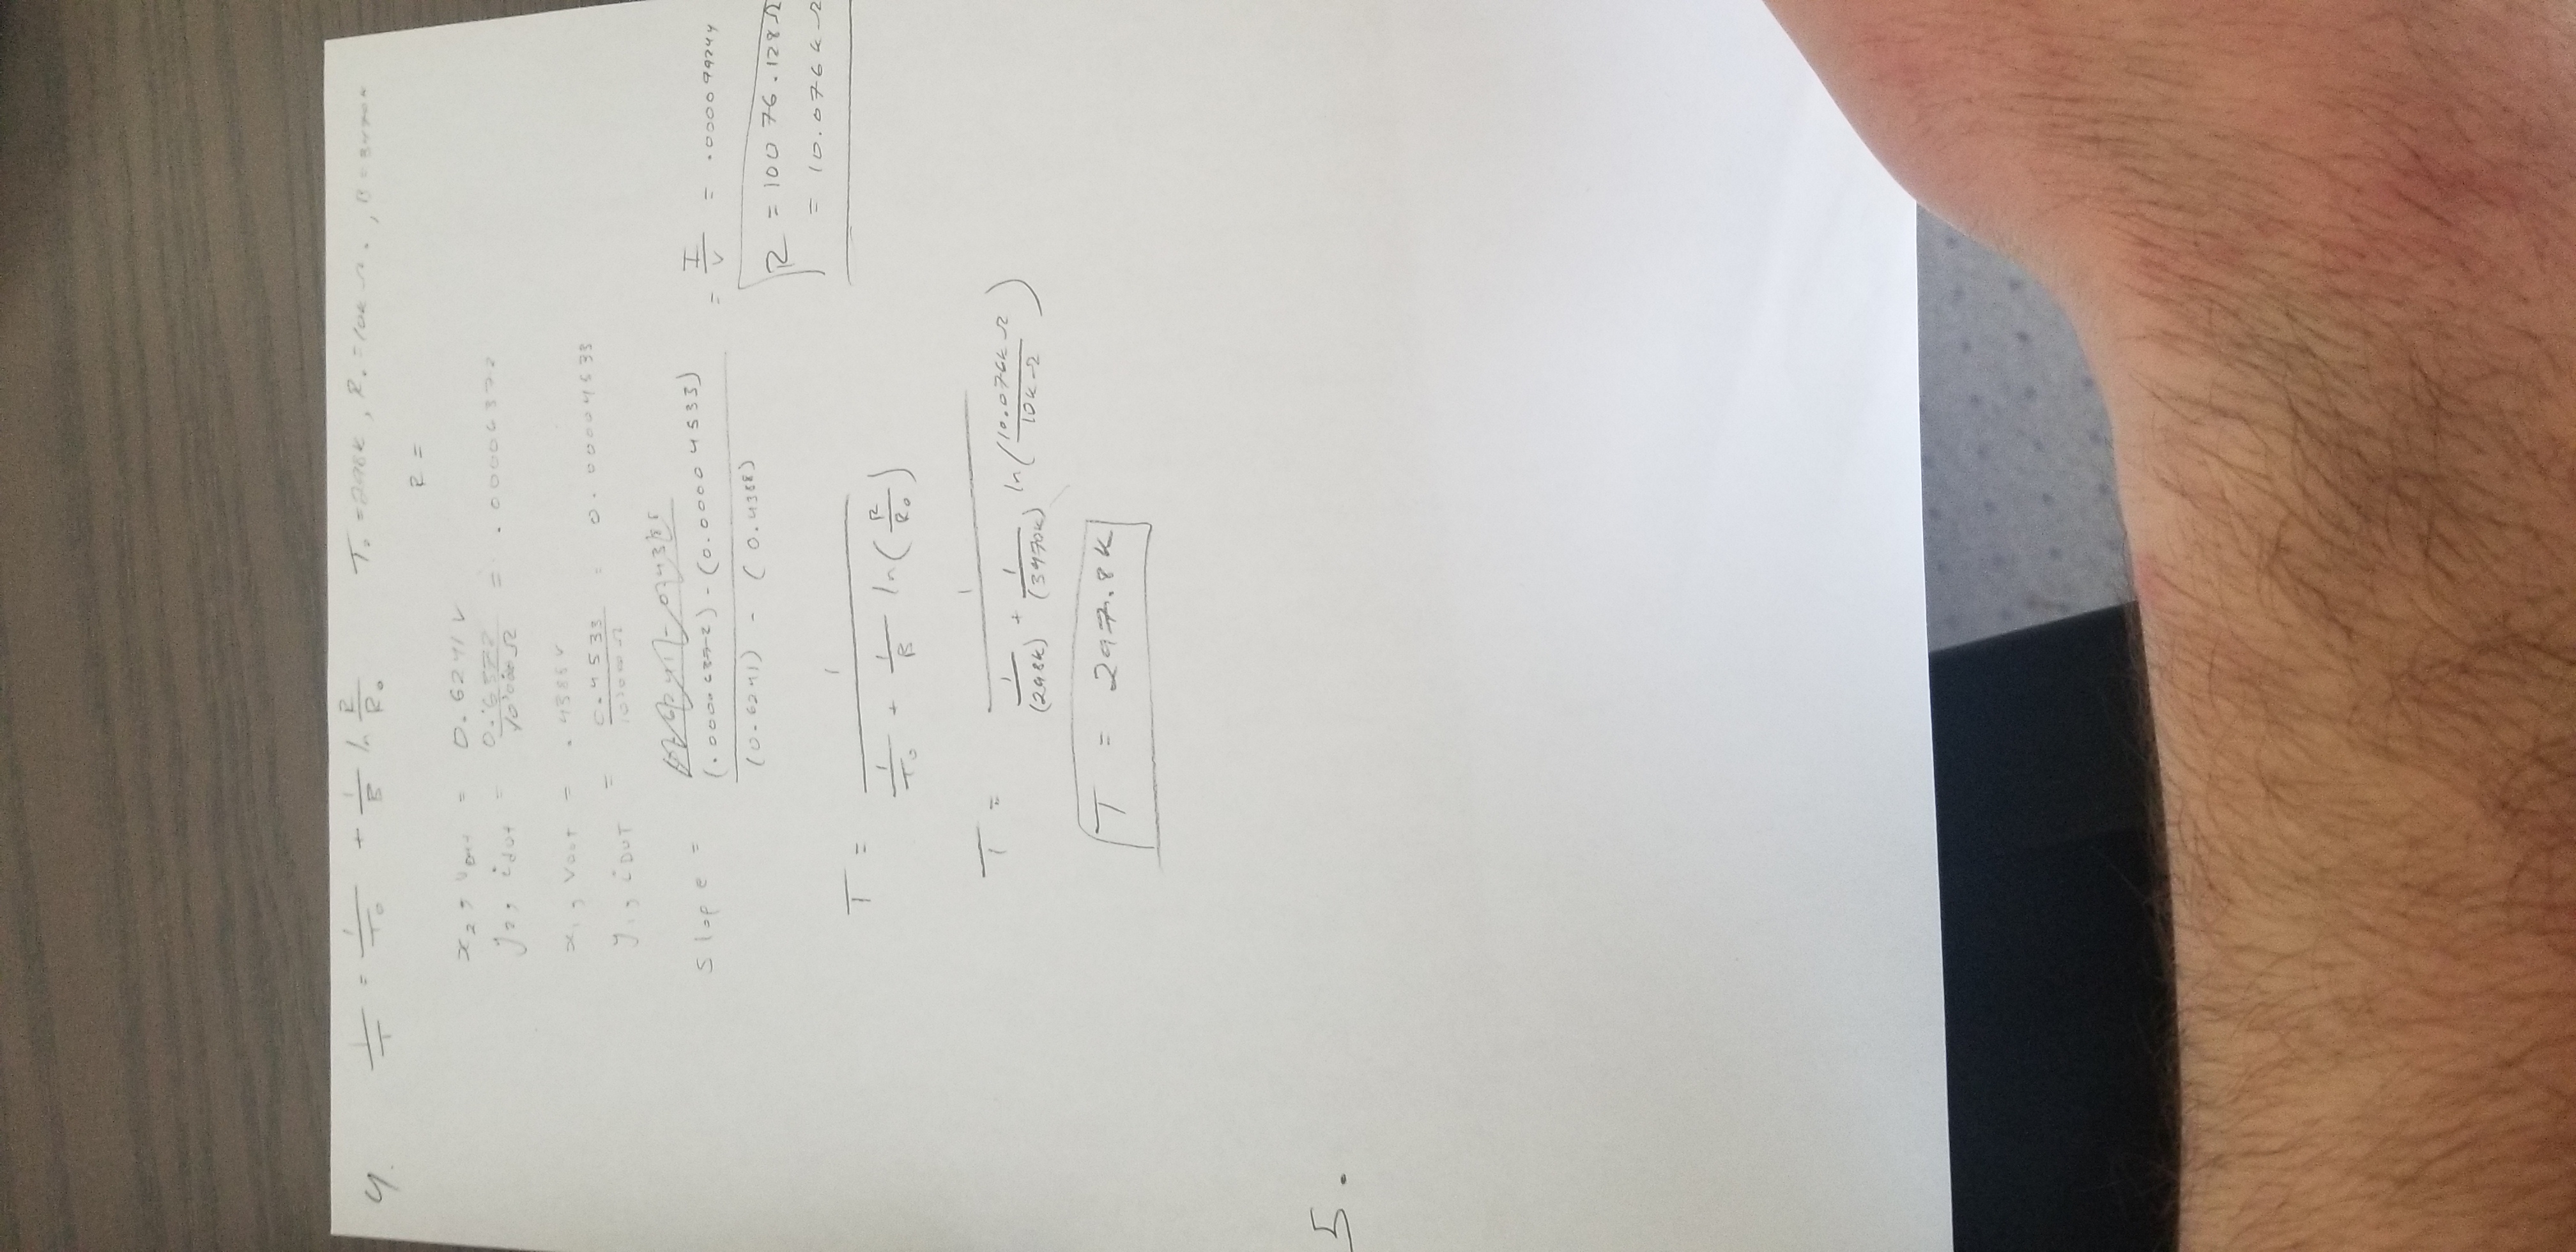 4. 1/T = 1/T₀ + 1/B ln R/R₀ T₀ = 298K, R₀ = 10kΩ, B = 3470K
R =
x₂, Vout = 0.6241 V
y₂, iDUT = 0.6372/10000Ω = .00006372
x₁, Vout = .4388V
y₁, iDUT = 0.4533/10000Ω = 0.00004533
Slope = (.00006372) - (0.00004533) / (0.6241) - (0.4388) = I/V = .000099244
R = 10076.128Ω
= 10.076kΩ
T = 1 / (1/T₀ + 1/B ln(R/R₀))
T = 1 / (1/(298K) + 1/(3470K) ln(10.076kΩ/10kΩ))
T = 297.8K
5.